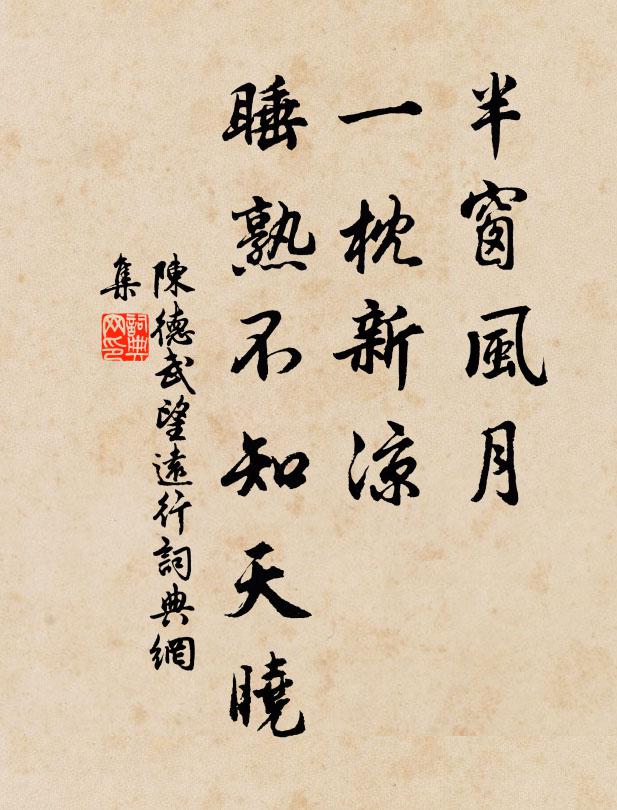 半窗風月
一枕新涼
睡熟不知天曉
陳德武望遠行詞典網
集
詞典
网印